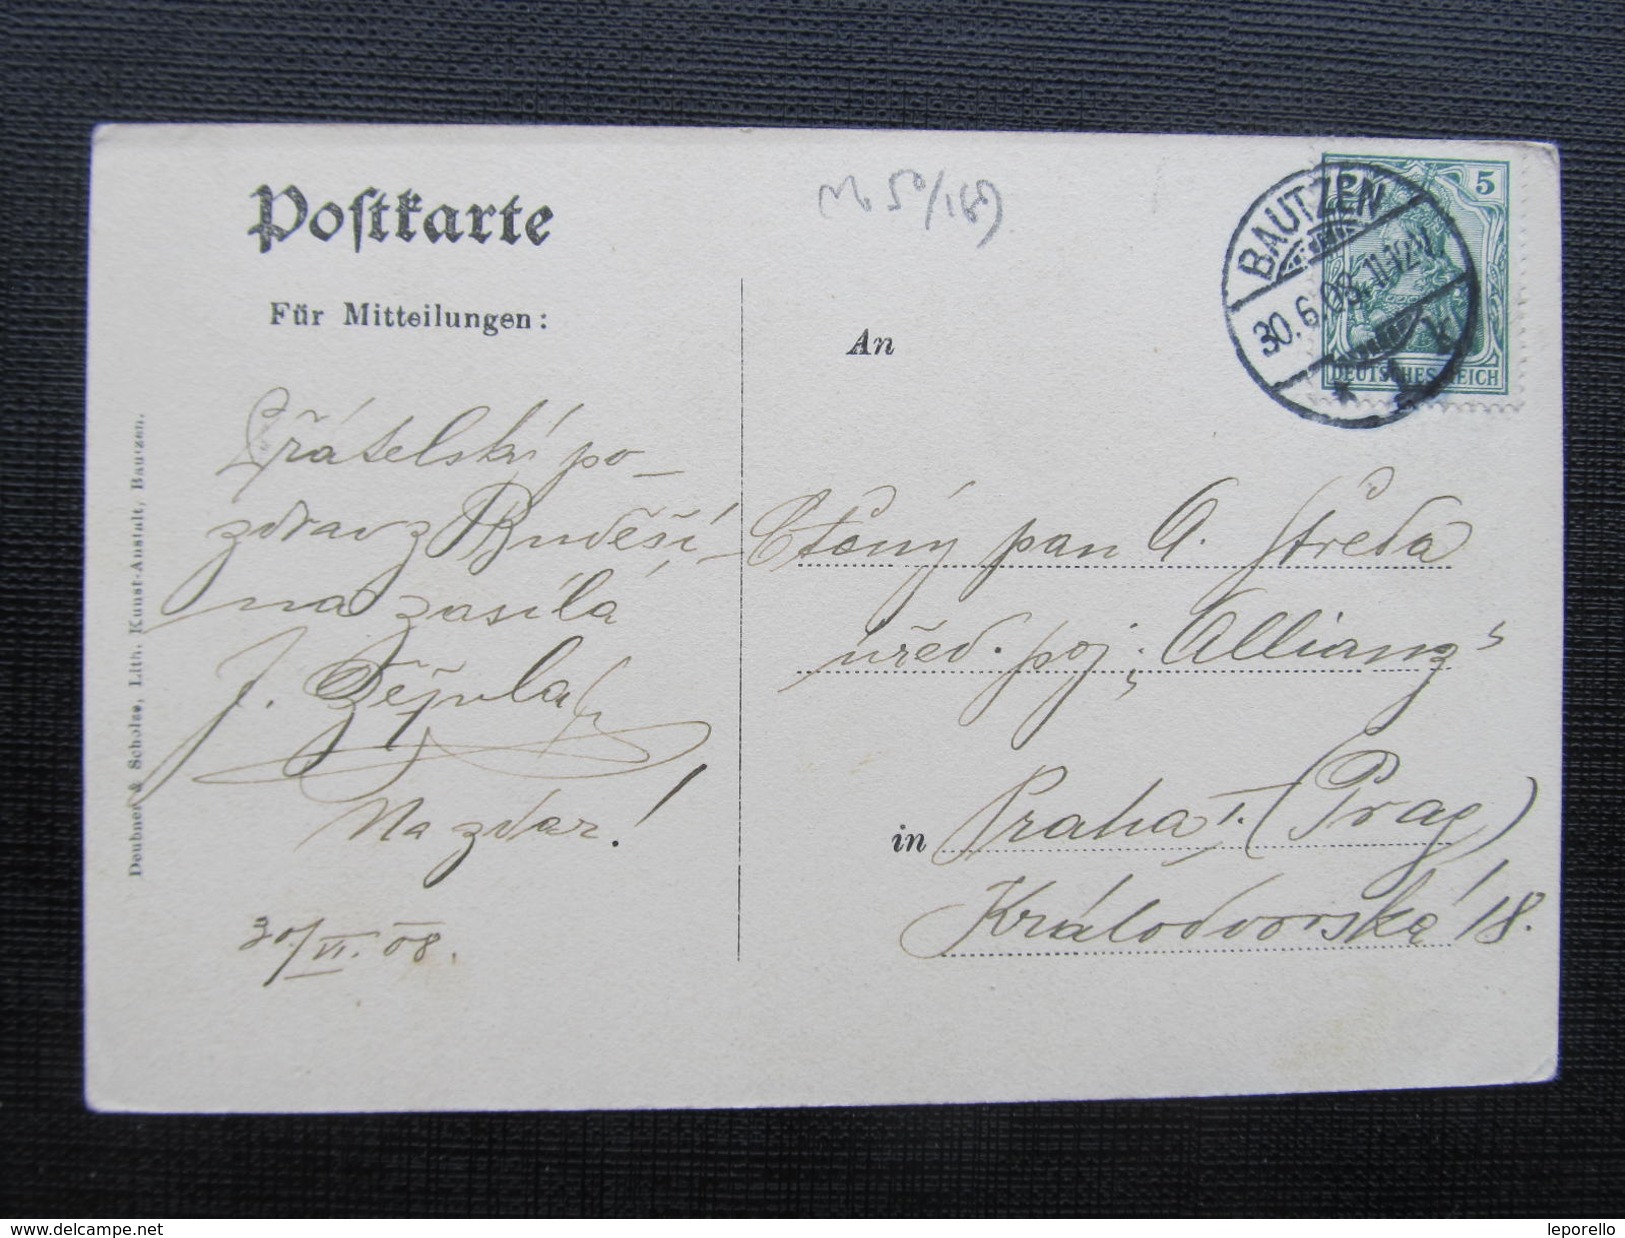 Postkarte
Für Mitteilungen:
Přátelský po-
zdrav z Buděší-
na zasílá
J.
Na zdar!
30/VI. 08.
Deubner & Scholze, Lith. Kunst-Anstalt, Bautzen.
BAUTZEN
30.6.08.11-12V.
* 1 k
5
DEUTSCHES REICH
An
Ctěný pan A. Středa
úřed. poj. „Allianz"
in Praha I. (Prag)
Královodvorská 18.
www.delcampe.net
leporello